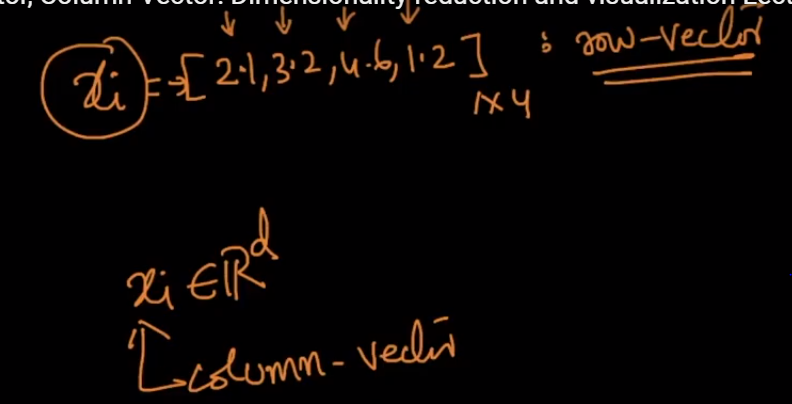 Column Vector: Dimensionality reduction and visualization
xi = [2.1, 3.2, 4.6, 1.2] 1×4 : row-vector
xi ∈ ℝ^d
column-vector